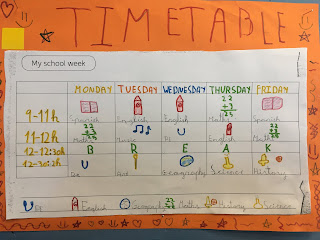 TIMETABLE
My school week
MONDAY TUESDAY WEDNESDAY THURSDAY FRIDAY
9-11h Spanish English English Maths Spanish
11-12h Maths Music Pe English Maths
12-12:30h B R E A K
12-30:2h Pe Art Geography Science History
Pe English Geography Maths Science